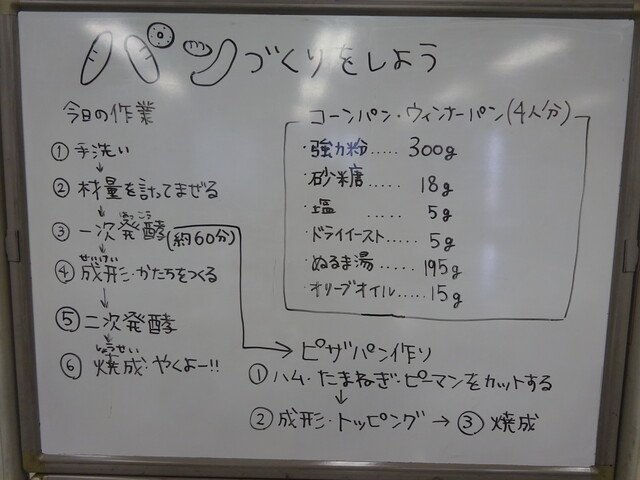 パンづくりをしよう
今日の作業
①手洗い
↓
②材量を計ってまぜる
↓
③一次発酵(約60分)
はっこう
↓
④成形・かたちをつくる
せいけい
↓
⑤二次発酵
↓
⑥焼成・やくよー!!
しょうせい
コーンパン・ウィンナーパン(4人分)
・強力粉..... 300g
・砂糖..... 18g
・塩 ..... 5g
・ドライイースト..... 5g
・ぬるま湯..... 195g
・オリーブオイル..... 15g
→ピザパン作り
①ハム・たまねぎ・ピーマンをカットする
↓
②成形・トッピング→③焼成